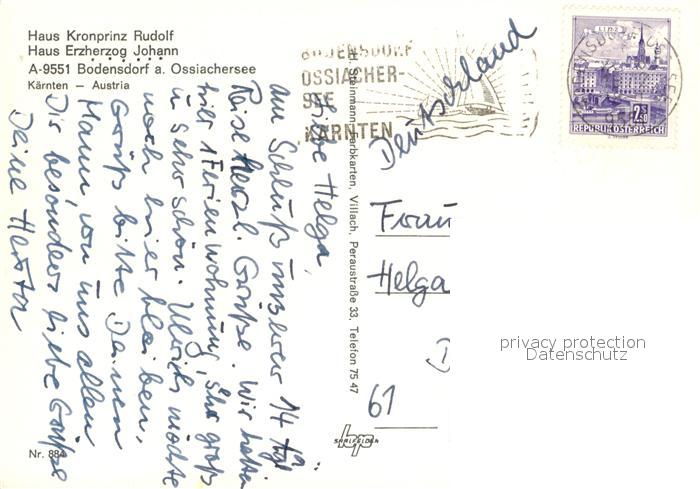 Haus Kronprinz Rudolf
Haus Erzherzog Johann
A-9551 Bodensdorf a. Ossiachersee
Kärnten — Austria
BODENSDORF
OSSIACHER-
SEE
KÄRNTEN
LINZ
2.50
REPUBLIK ÖSTERREICH
Deutschland
Liebe Helga,
am Schluß unserer 14 täg
Reise herzl. Grüße. Wir hatten
hier 1 Ferienwohnung, sehr groß
u. sehr schön. Ulrich möchte
noch hier bleiben.
Grüß bitte Deinen
Mann, von uns allen
Dir besonders liebe Grüße
Deine Herta
H. Steinmann, Farbkarten, Villach, Peraustraße 33, Telefon 75 47
Frau
Helga
61
privacy protection
Datenschutz
SAALFELDEN
Nr. 884